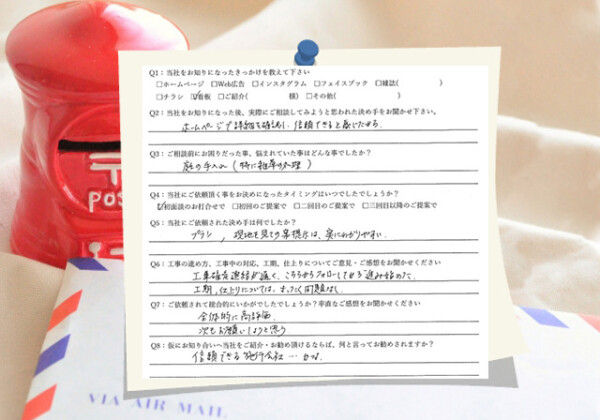 Q1：当社をお知りになったきっかけを教えて下さい
□ホームページ □Web広告 □インスタグラム □フェイスブック □雑誌(　　　)
□チラシ ☑看板 □ご紹介(　　　様) □その他(　　　)
Q2：当社をお知りになった後、実際にご相談してみようと思われた決め手をお聞かせ下さい。
ホームページで詳細を確認し、信頼できると感じたから。
Q3：ご相談前にお困りだった事、悩まれていた事はどんな事でしたか？
庭の手入れ（特に雑草の処理）
Q4：当社にご依頼頂く事をお決めになったタイミングはいつでしたでしょうか？
☑初回面のお打合せで □初回のご提案で □二回目のご提案で □三回目以降のご提案で
Q5：当社にご依頼された決め手は何でしたか？
プラン, 現地を見ての
は、実にわかりやすい.
Q6：工事の進め方、工事中の対応、工期、仕上りについてご意見・ご感想をお聞かせください
工事
連絡が
、こちらからフォローして
進み始めた。
工期、仕上りについては、まったく問題なし.
Q7：ご依頼されて総合的にいかがでしたでしょうか？率直なご感想をお聞かせください
全体的に高評価.
次もお願いしようと思う
Q8：仮にお知り合いへ当社をご紹介・お勧め頂けるならば、何と言ってお勧めされますか？
信頼できる施行会社…かな.
POS
VIA AIR MAIL